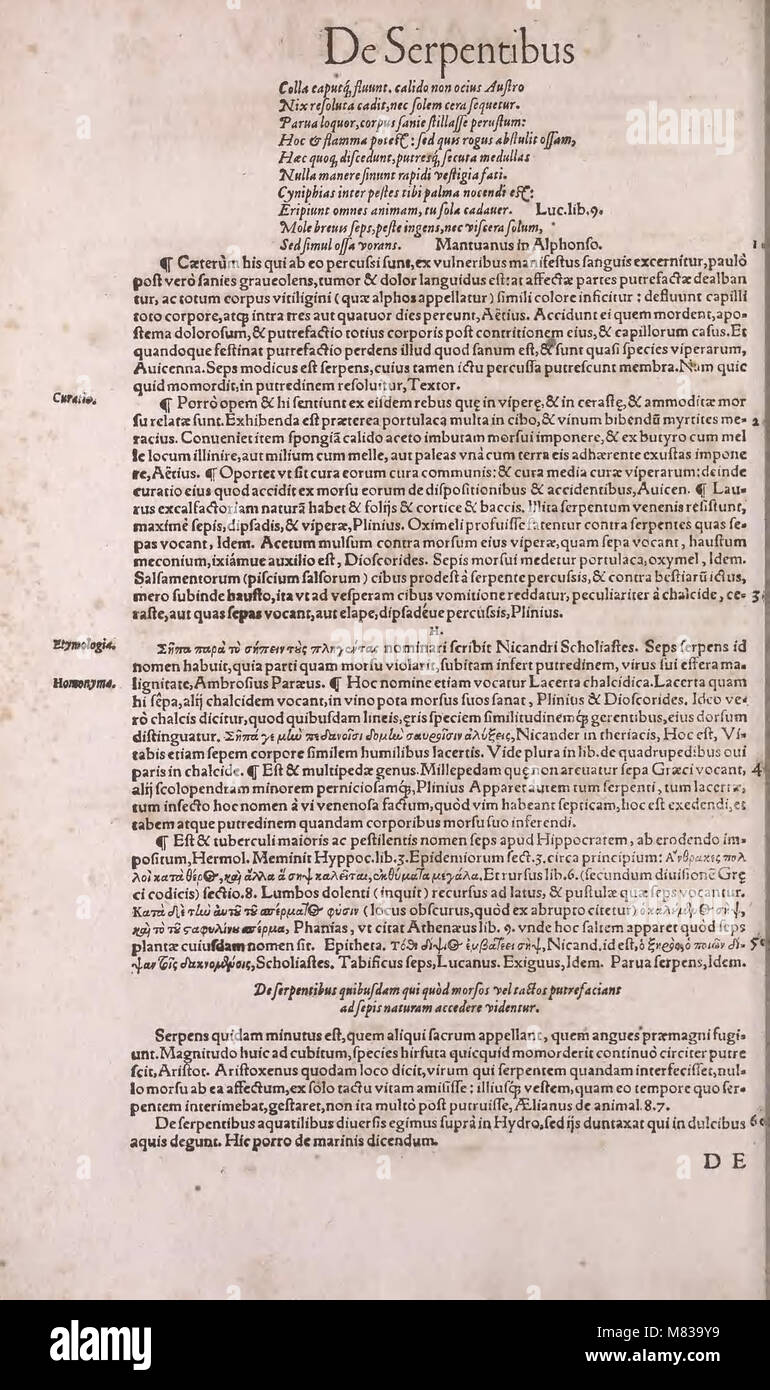 De Serpentibus
Colla caputq́; fluunt. calido non ocius Austro
Nix resoluta cadit, nec solem cera sequetur.
Parua loquor, corpus sanie stillasse perustum:
Hoc & flamma potest: sed quis rogus abstulit ossa?
Hæc quoq; discedunt, putresq́; secuta medullas
Nulla manere sinunt rapidi vestigia fati.
Cyniphias inter pestes tibi palma nocendi est:
Eripiunt omnes animam, tu sola cadauer. Luc. lib. 9.
Mole breuis seps, peste ingens, nec viscera solum,
Sed simul ossa vorans. Mantuanus in Alphonso.
¶ Cæterùm his qui ab eo percussi sunt, ex vulneribus manifestus sanguis excernitur, paulò
post verò sanies graueolens, tumor & dolor languidus est: at affectæ partes putrefactæ dealban
tur, ac totum corpus vitiligini (quæ alphos appellatur) simili colore inficitur: defluunt capilli
toto corpore, atq; intra tres aut quatuor dies pereunt, Aëtius. Accidunt ei quem mordent, apo-
stema dolorosum, & putrefactio totius corporis post contritionem eius, & capillorum casus. Et
quandoque festinat putrefactio perdens illud quod sanum est, & sunt quasi species viperarum,
Auicenna. Seps modicus est serpens, cuius tamen ictu percussa putrescunt membra. Nam quic
quid momordit, in putredinem resoluitur, Textor.
Curatio.
¶ Porrò opem & hi sentiunt ex eisdem rebus quę in viperę, & in cerastę, & ammoditæ mor
su relatæ sunt. Exhibenda est præterea portulaca multa in cibo, & vinum bibendũ myrtites me- 2
racius. Conueniet item spongiã calido aceto imbutam morsui imponere, & ex butyro cum mel
le locum illinire, aut milium cum melle, aut paleas vnà cum terra eis adhærente exustas impone
re, Aëtius. ¶ Oportet vt sit cura eorum cura communis: & cura media curæ viperarum: deinde
curatio eius quod accidit ex morsu eorum de dispositionibus & accidentibus, Auicen. ¶ Lau-
rus excalfactoriam naturã habet & folijs & cortice & baccis. Illita serpentum venenis resistunt,
maximè sepis, dipsadis, & viperæ, Plinius. Oximeli profuisse fatentur contra serpentes quas se-
pas vocant, Idem. Acetum mulsum contra morsum eius viperæ, quam sepa vocant, haustum
meconium, ixiámue auxilio est, Dioscorides. Sepis morsui medetur portulaca, oxymel, Idem.
Salsamentorum (piscium salsorum) cibus prodest à serpente percussis, & contra bestiarũ ictus,
mero subinde hausto, ita vt ad vesperam cibus vomitione reddatur, peculiariter à chalcide, ce- 3
raste, aut quas sepas vocant, aut elape, dipsadéue percussis, Plinius.
H.
Etymologia.
Σῆπα παρὰ τὸ σήπειν τοὺς πληγέντας nominari scribit Nicandri Scholiastes. Seps serpens id
nomen habuit, quia parti quam morsu violarit, subitam infert putredinem, virus sui effera ma-
Homonyma.
lignitate, Ambrosius Paræus. ¶ Hoc nomine etiam vocatur Lacerta chalcidica. Lacerta quam
hi sêpa, alij chalcidem vocant, in vino pota morsus suos sanat, Plinius & Dioscorides. Ideo ve-
rò chalcis dicitur, quod quibusdam lineis, ęris speciem similitudinemq́; gerentibus, eius dorsum
distinguatur. Σῆπά γε μὶω πεδανοῖσι δομὶω σαυροῖσιν ἀλύξεις, Nicander in theriacis, Hoc est, Vi-
tabis etiam sepem corpore similem humilibus lacertis. Vide plura in lib. de quadrupedibus oui
paris in chalcide. ¶ Est & multipedæ genus. Millepedam quę non arcuatur sepa Græci vocant, 4
alij scolopendram minorem perniciosamq́;, Plinius Apparet autem tum serpenti, tum lacertæ,
tum insecto hoc nomen à vi venenosa factum, quòd vim habeant septicam, hoc est exedendi, et
tabem atque putredinem quandam corporibus morsu suo inferendi.
¶ Est & tuberculi maioris ac pestilentis nomen seps apud Hippocratem, ab erodendo im-
positum, Hermol. Meminit Hyppoc. lib. 3. Epidemiorum sect. 3. circa principium: Ἄνθρακες πολ
λοὶ κατὰ θέρος, καὶ ἄλλα ἃ σὴψ καλεῖται, ἐκθύματα μεγάλα, Et rursus lib. 6. (secundum diuisionẽ Grę
ci codicis) sectio. 8. Lumbos dolenti (inquit) recursus ad latus, & pustulæ quæ seps vocantur.
Κατὰ δὲ τὶω αὐτὴ τοῦ σπέρματος φύσιν (locus obscurus, quòd ex abrupto citetur) ὁ καλούμενος σὴψ,
καὶ τὸ τοῦ σταφυλίνου σπέρμα, Phanias, vt citat Athenæus lib. 9. vnde hoc saltem apparet quòd seps
plantæ cuiusdam nomen sit. Epitheta. Τόθι δίψιος ἐμβατέει σήψ, Nicand. id est, ὁ ξηρός, ὁ ποιῶν δι- 5
ψαν τοῖς δακνομένοις, Scholiastes. Tabificus seps, Lucanus. Exiguus, Idem. Parua serpens, Idem.
De serpentibus quibusdam qui quòd morsos vel tactos putrefaciant
ad sepis naturam accedere videntur.
Serpens quidam minutus est, quem aliqui sacrum appellant, quem angues præmagni fugi-
unt. Magnitudo huic ad cubitum, species hirsuta quicquid momorderit continuò circiter putre
scit, Aristot. Aristoxenus quodam loco dicit, virum qui serpentem quandam interfecisset, nul-
lo morsu ab ea affectum, ex solo tactu vitam amisisse: illiusq́; vestem, quam eo tempore quo ser-
pentem interimebat, gestaret, non ita multò post putruisse, Ælianus de animal. 8.7.
De serpentibus aquatilibus diuersis egimus suprà in Hydro, sed ijs duntaxat qui in dulcibus 6
aquis degunt. Hic porro de marinis dicendum.
D E
alamy
Image ID: M839Y9
www.alamy.com